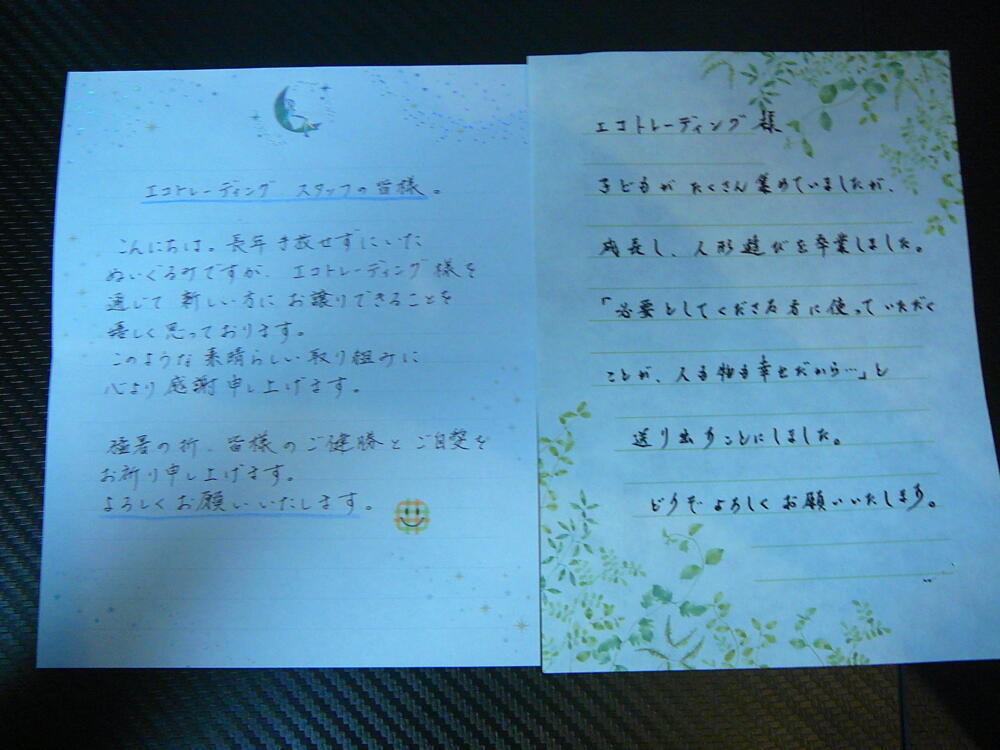 エコトレーディング スタッフの皆様。
こんにちは。長年手放せずにいた
ぬいぐるみですが、エコトレーディング様を
通じて新しい方にお譲りできることを
嬉しく思っております。
このような素晴らしい取り組みに
心より感謝申し上げます。
猛暑の折、皆様のご健勝とご自愛を
お祈り申し上げます。
よろしくお願いいたします。
エコトレーディング様
子どもがたくさん集めていましたが、
成長し、人形遊びを卒業しました。
「必要としてくださる方に使っていただく
ことが、人も物も幸せだから…」と
送り出すことにしました。
どうぞよろしくお願いいたします。